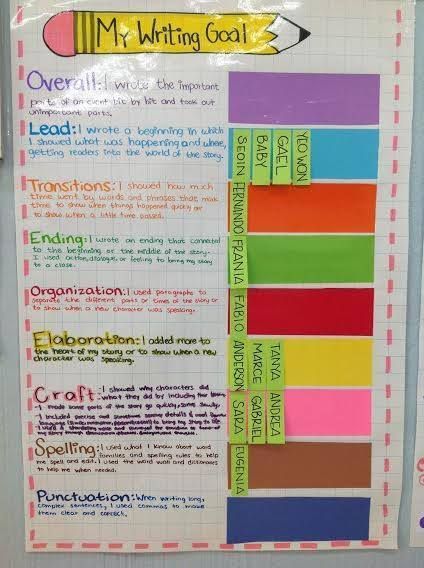 My Writing Goal
Overall: I wrote the important
parts of an event bit by bit and took out
unimportant parts.
Lead: I wrote a beginning in which
I showed what was happening and where,
getting readers into the world of the story.
SEOIN
BABY
GAEL
YEO WON
Transitions: I showed how much
time went by words and phrases that make
time to show when things happened quickly or
to show when a little time passed.
FERNANDO
Ending: I wrote an ending that connected
to the beginning or the middle of the story.
I used action, dialogue, or feeling to bring my story
to a close.
FRANIA
Organization: I used paragraphs to
separate the different parts or times of the story or
to show when a new character was speaking.
FABIO
Elaboration: I added more to
the heart of my story or to show when a new
character was speaking.
ANDERSON
MARCE
TANYA
Craft: I showed why characters did
what they did by including their
I made some parts of the story go quickly, some slowly.
I included precise and sometimes sensory details and used
SARA
GABRIEL
ANDREA
Spelling: I used what I know about word
families and spelling rules to help
me spell and edit. I used the word wall and dictionaries
to help me when needed.
EUGENIA
Punctuation: When writing long,
complex sentences, I used commas to make
them clear and correct.